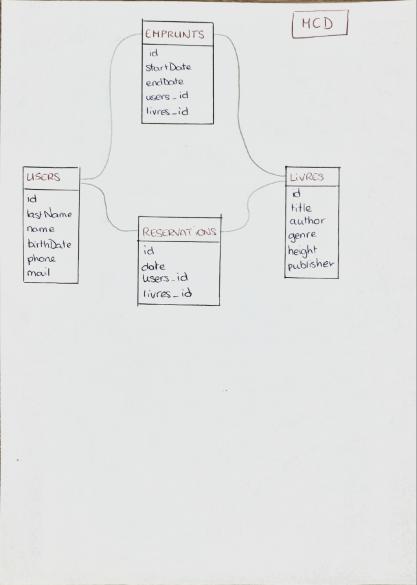 MCD
EMPRUNTS
id
startDate
endDate
users_id
livres_id
USERS
id
lastName
name
birthDate
phone
mail
RESERVATIONS
id
date
users_id
livres_id
LIVRES
id
title
author
genre
height
publisher